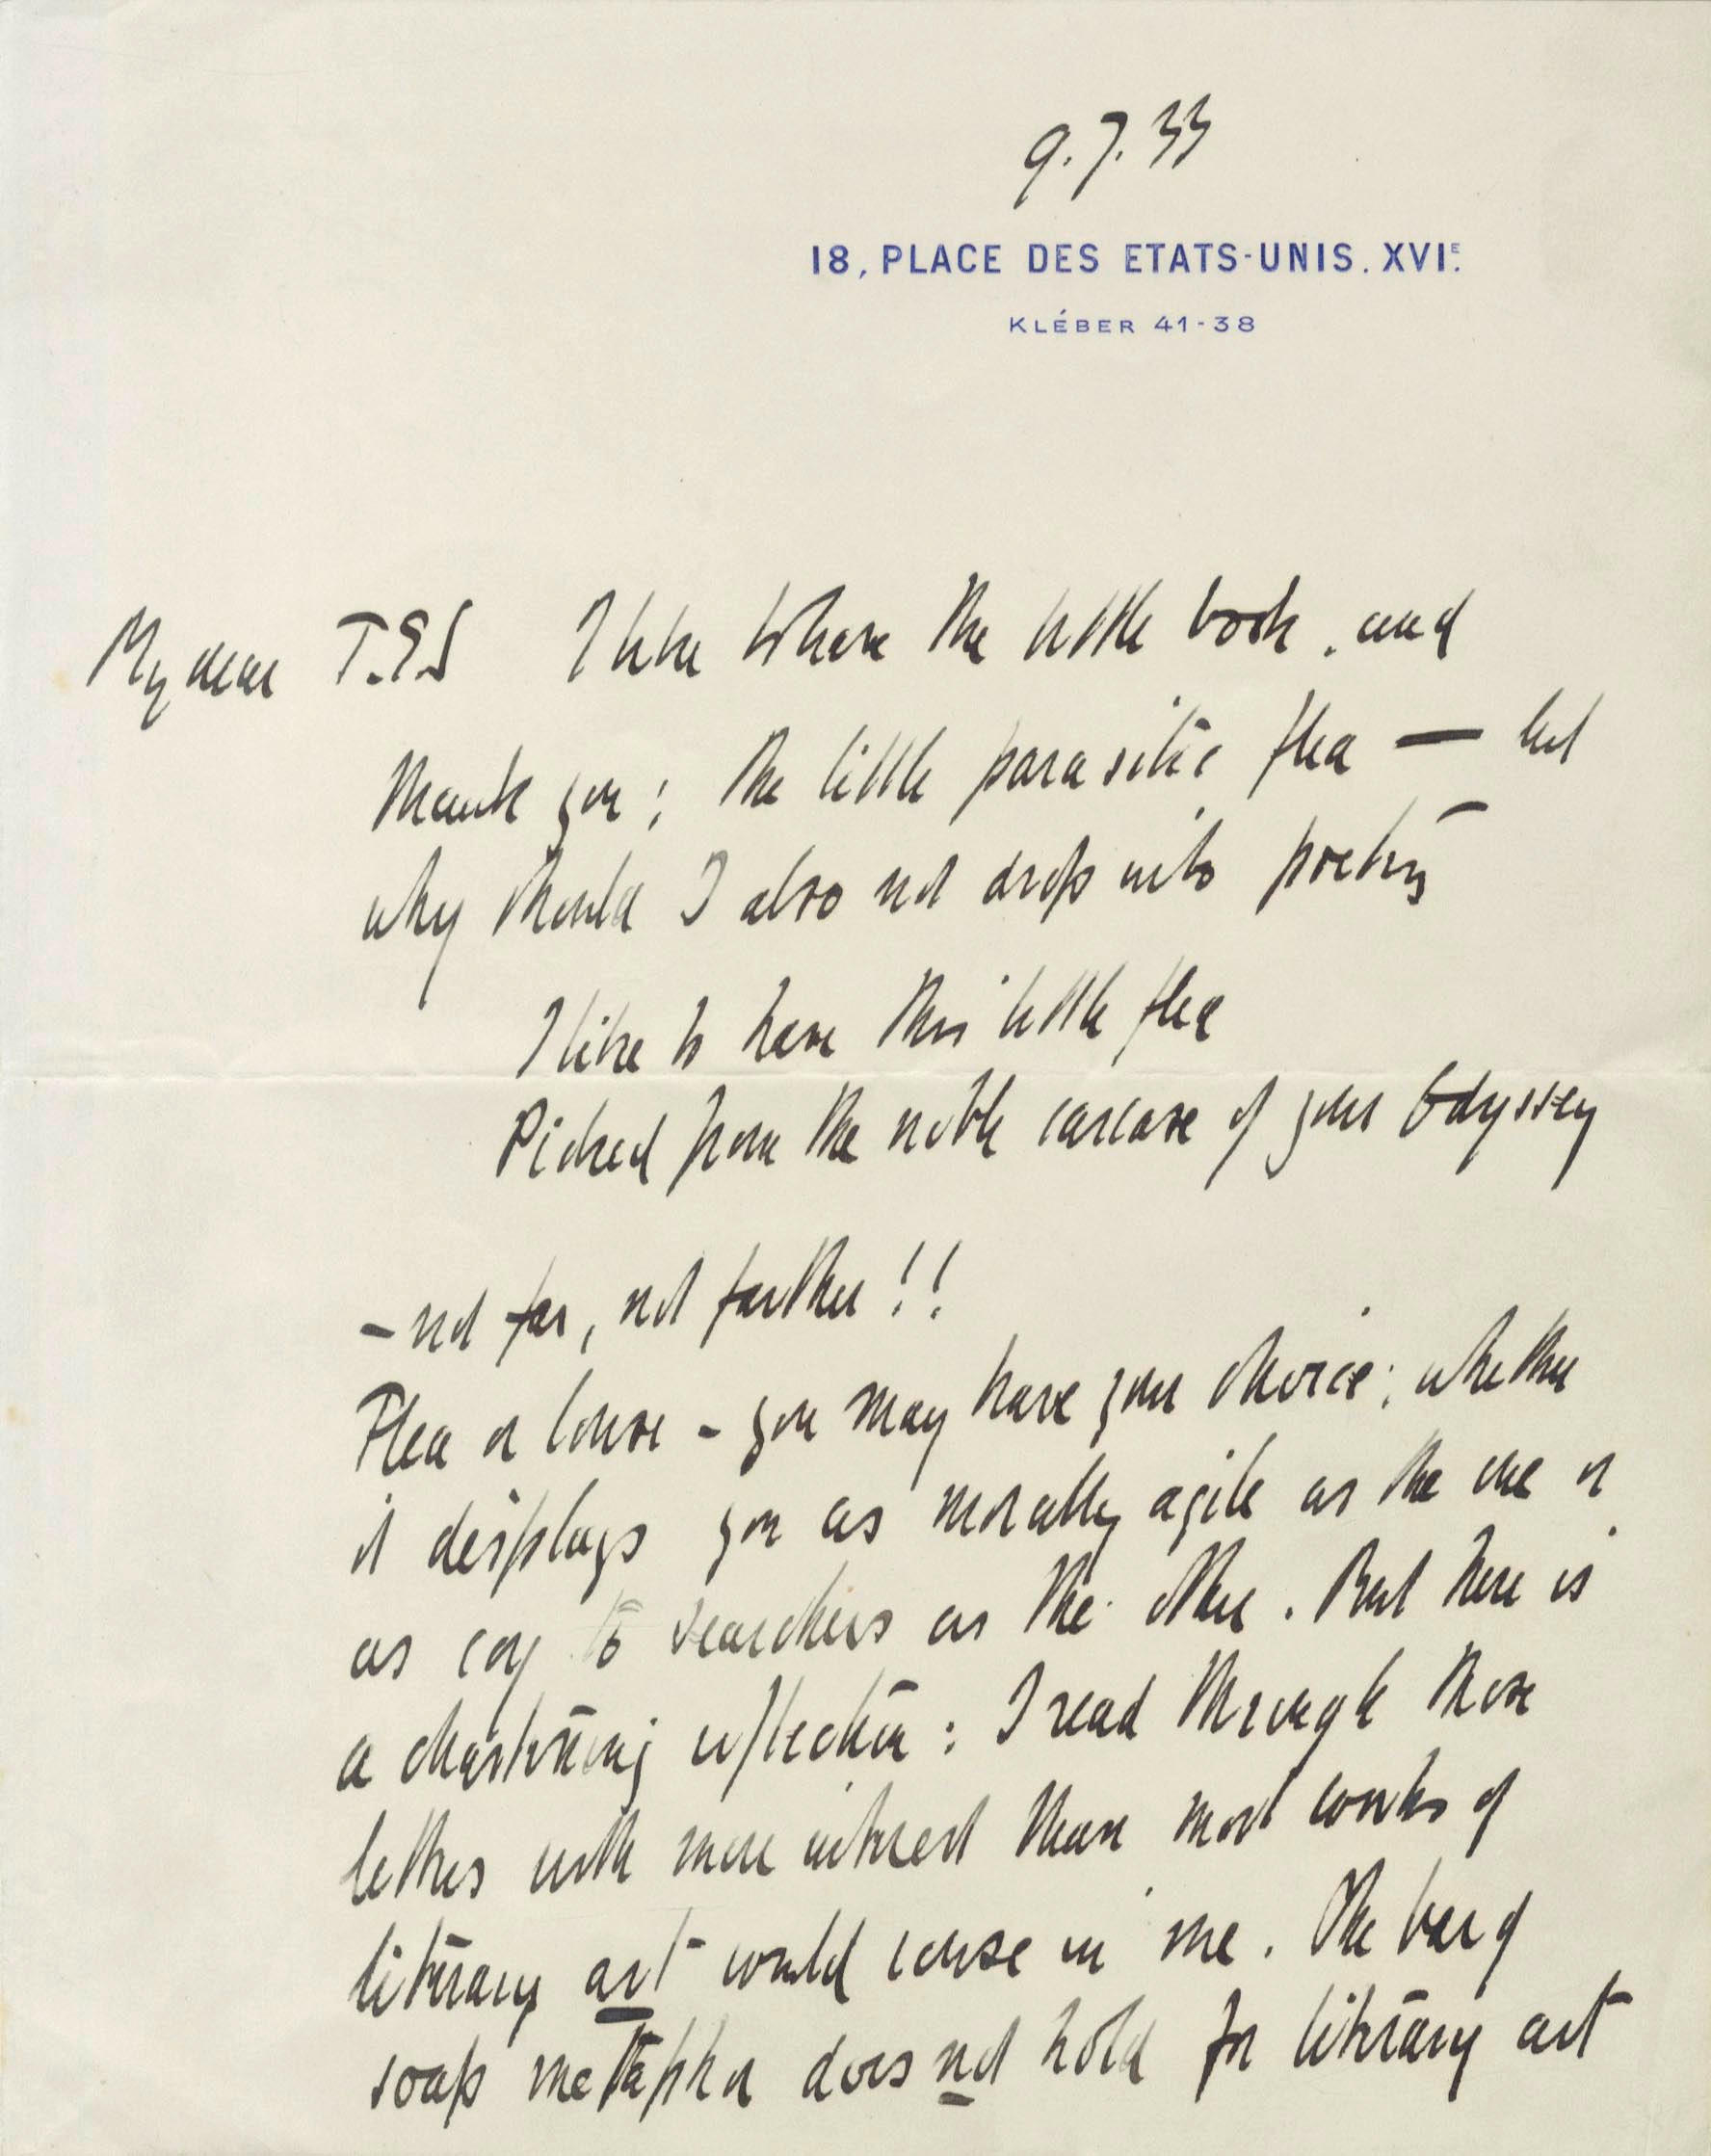 9.7.33
18, PLACE DES ETATS-UNIS. XVIE.
KLÉBER 41-38
My dear T.E.S I like to have the little book, and
thank you; the little parasitic flea — but
why should I also not drop into poetry
I like to have this little flea
Picked from the noble carcase of your Odyssey
- not far, not farther!!
Flea or louse - you may have your choice; whether
it displays you as morally agile as the one or
as coy to searchers as the other. But here is
a chastening reflection: I read through those
letters with more interest than most works of
literary art would rouse in me. The bar of
soap metaphor does not hold for literary art